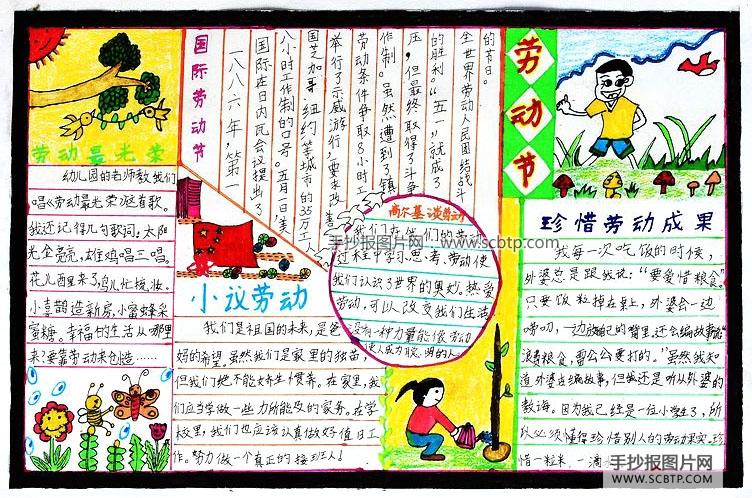 劳动节
国际劳动节
一八八六年，第一
国际在日内瓦会议提出了
八小时工作制的口号。五月一日，美
国芝加哥、纽约等城市的35万工人
举行了示威游行，要求改善
劳动条件争取8小时工
作制。虽然遭到了镇
压，但最终取得了斗争
的胜利。“五一”就成了
全世界劳动人民团结战斗
的节日。
劳动最光荣
幼儿园的老师教我们
唱《劳动最光荣》这首歌。
我还记得几句歌词：太阳
光金亮亮，雄鸡唱三唱。
花儿西里来了，鸟儿忙梳妆。
小喜鹊造新房，小蜜蜂采
蜜糖。幸福的生活从哪里
来？要靠劳动来创造……
高尔基谈劳动
我们在
过程中学习、思考，劳动使
我们认识了世界的奥妙，热爱
劳动，可以改变我们生活
没有一种力量能像劳动
使人成为 聪明的人
小议劳动
我们是祖国的未来，是爸
妈的希望。虽然我们是家里的独苗，
但我们绝不能娇生惯养。在家里，我
们应当学做一些力所能及的家务。在学
校里，我们也应该认真做好值日工
作。努力做一个真正的接班人！
珍惜劳动成果
我每一次吃饭的时候，
外婆总是跟我说：“要爱惜粮食”
只要饭粒掉在桌上，外婆会一边
唠叨，一边放自己的嘴里，还会编故事说
“浪费粮食，雷公公要打的。”虽然我知
道外婆在编故事，但我还是听从外婆的
教诲。因为我已经是一位小学生了，所
以必须懂得珍惜别人的劳动果实。珍
惜一粒米，一滴
手抄报图片网 www.scbtp.com
手抄报图片网
WWW.SCBTP.COM